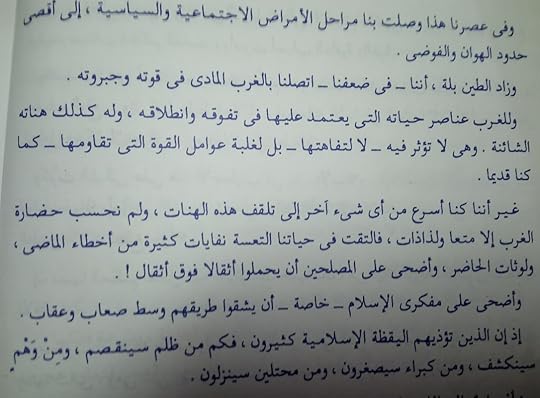 وفى عصرنا هذا وصلت بنا مراحل الأمراض الاجتماعية والسياسية ، إلى أقصى
حدود الهوان والفوضى .
وزاد الطين بلة ، أننا ــ فى ضعفنا ــ اتصلنا بالغرب المادى فى قوته وجبروته .
وللغرب عناصر حياته التى يعتمد عليها فى تفوقه وانطلاقه ، وله كذلك هناته
الشائنة . وهى لا تؤثر فيه ــ لا لتفاهتها ــ بل لغلبة عوامل القوة التى تقاومها ــ كما
كنا قديما .
غير أننا كنا أسرع من أى شىء آخر إلى تلقف هذه الهنات ، ولم نحسب حضارة
الغرب إلا متعا ولذاذات ، فالتقت فى حياتنا التعسة نفايات كثيرة من أخطاء الماضى ،
ولوثات الحاضر ، وأضحى على المصلحين أن يحملوا أثقالا فوق أثقال ! .
وأضحى على مفكرى الإسلام ــ خاصة ــ أن يشقوا طريقهم وسط صعاب وعقاب .
إذ إن الذين تؤذيهم اليقظة الإسلامية كثيرون ، فكم من ظلم سينقصم ، ومِنْ وَهْمٍ
سينكشف ، ومن كبراء سيصغرون ، ومن محتلين سينزلون .